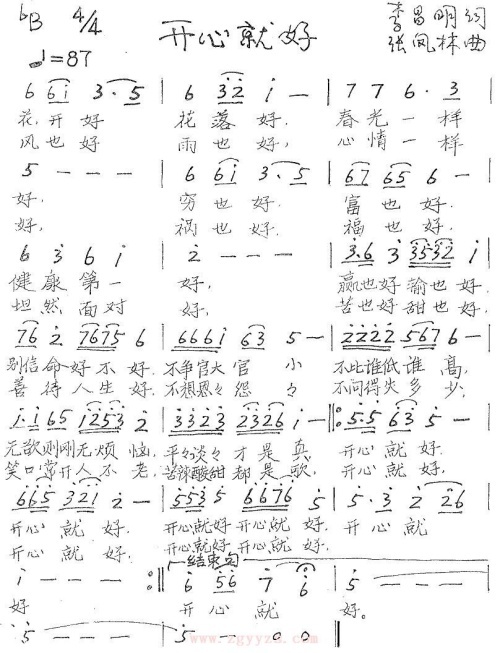 ♭B 4/4 开心就好 李昌明词
♩=87 张凤林曲
6 6i 3·5 | 6 32 i — | 7 7 6·3
花开好 花落好. 春光一样
风也好 雨也好, 心情一样
5 — — — | 6 6i 3·5 | 67 65 6 —
好. 穷也好. 富也好.
好, 祸也好. 福也好.
6 3 6 i | 2 — — — | 3·6 3 3532 i
健康第一 好, 赢也好输也好.
坦然面对 好, 苦也好甜也好.
76 2 7675 6 | 6661 63 5 — | 2222 567 6 —
别信命好不好. 不争官大官小 不比谁低谁高,
善待人生好. 不想恩々怨々 不问得失多少,
1·1 65 1253 2 | 3322 2326 i — |: 5·5 63 5 —
无欲则刚无烦恼, 平々淡々才是真 开心就好.
笑口常开人不老, 苦辣酸甜都是歌, 开心就好,
665 321 2 — | 5535 6676 5 | 5·3 2 26
开心就好. 开心就好开心就好 开心就
开心就好. 开心就好开心就好
结束句
i — — — :| 6 56 7 6 | 5 — — —
好 开心就 好。
5 — — — | 5 — 0 0 ‖
www.zgyyzz.com